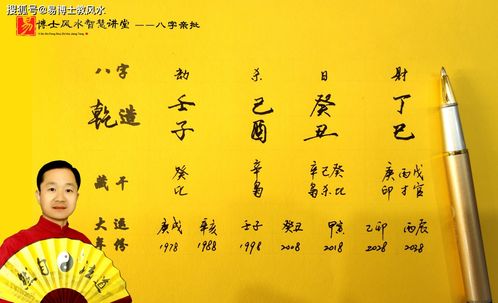 搜狐号@易博士教风水
易 博士风水智慧讲堂 ——八字亲批
八字 劫 杀 日 财
乾造 壬子 己酉 癸丑 丁巳
藏干 癸 辛 辛己癸 庚丙戊
比 枭 枭杀比 印才官
大运 庚戌 辛亥 壬子 癸丑 甲寅 乙卯 丙辰
年份 1978 1988 1998 2008 2018 2028 2038